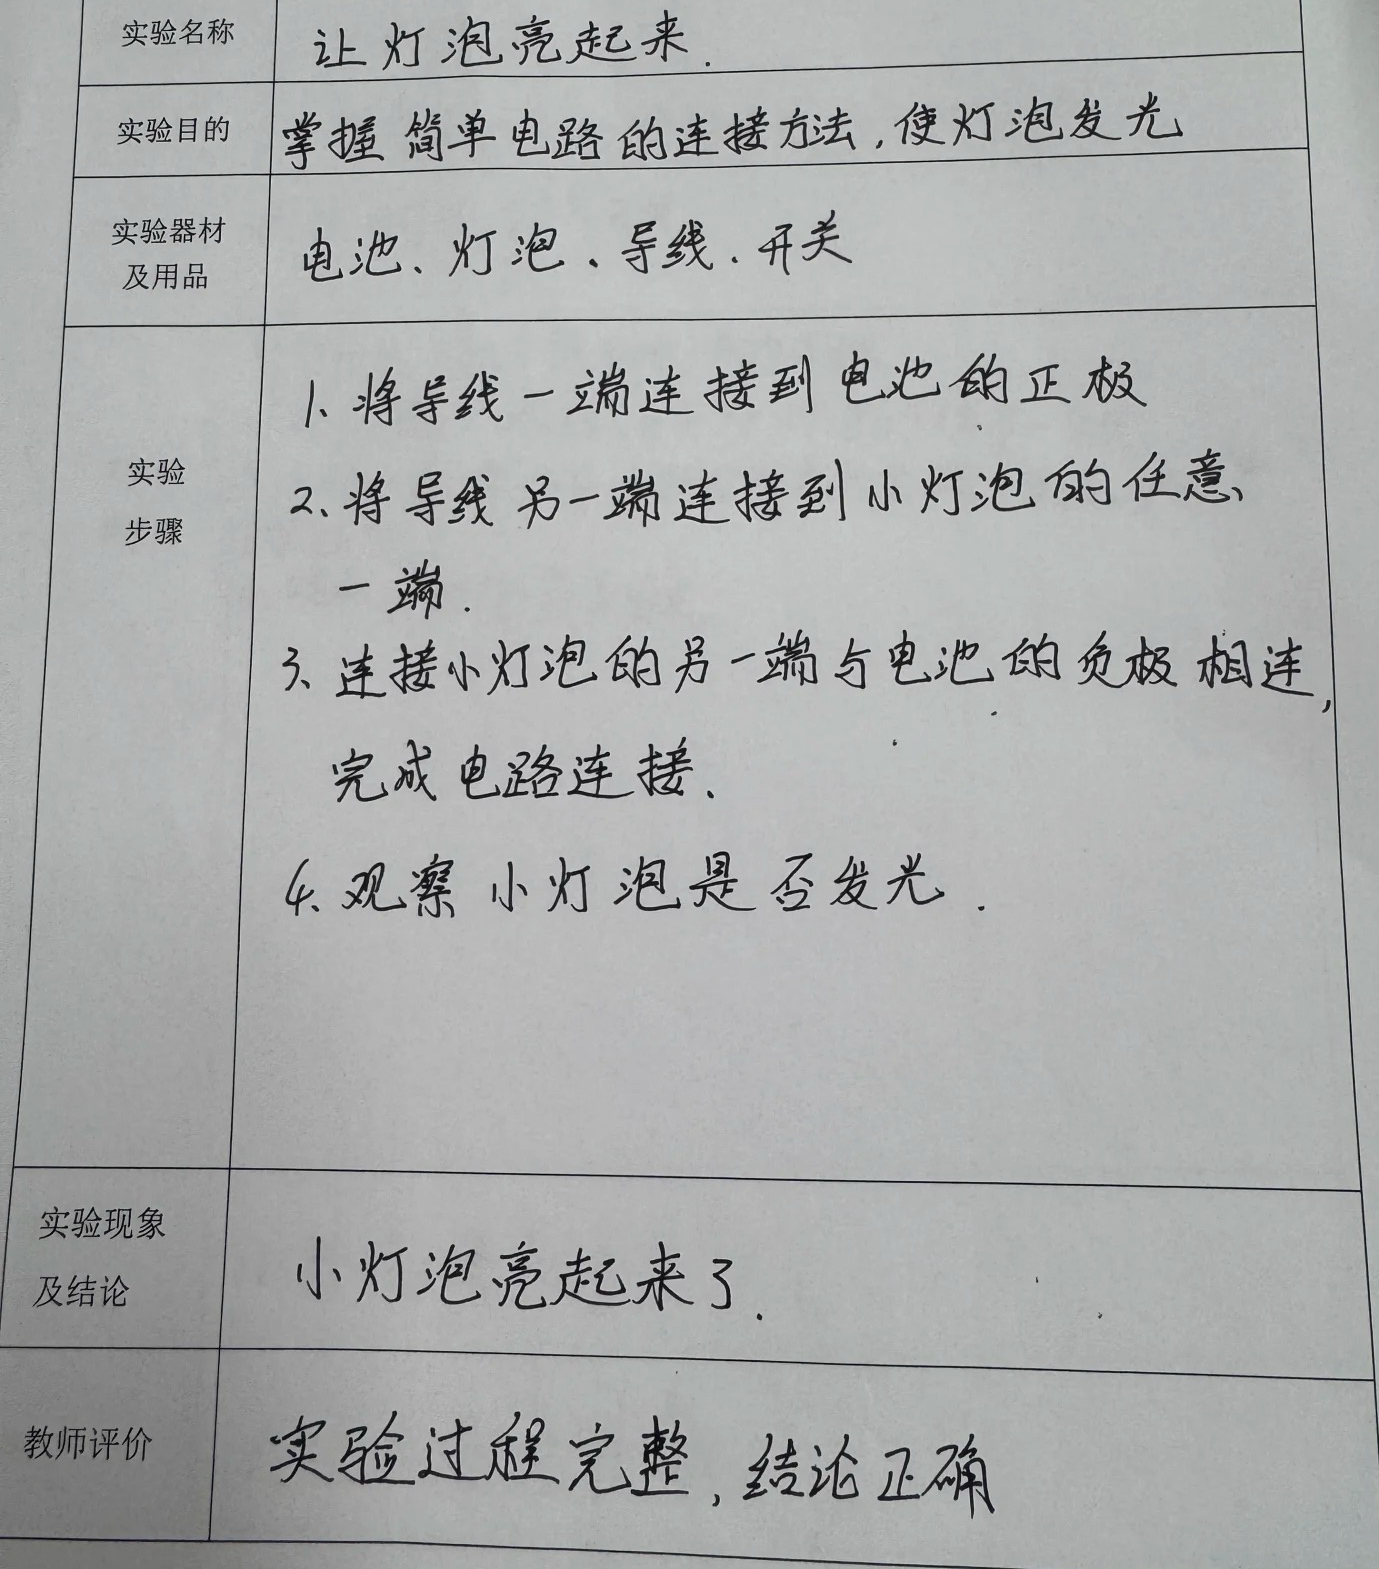 实验名称 让灯泡亮起来.
实验目的 掌握简单电路的连接方法,使灯泡发光
实验器材
及用品
电池、灯泡、导线、开关
实验
步骤
1、将导线一端连接到电池的正极
2、将导线另一端连接到小灯泡的任意
一端.
3、连接小灯泡的另一端与电池的负极相连,
完成电路连接.
4、观察小灯泡是否发光.
实验现象
及结论
小灯泡亮起来了.
教师评价 实验过程完整,结论正确